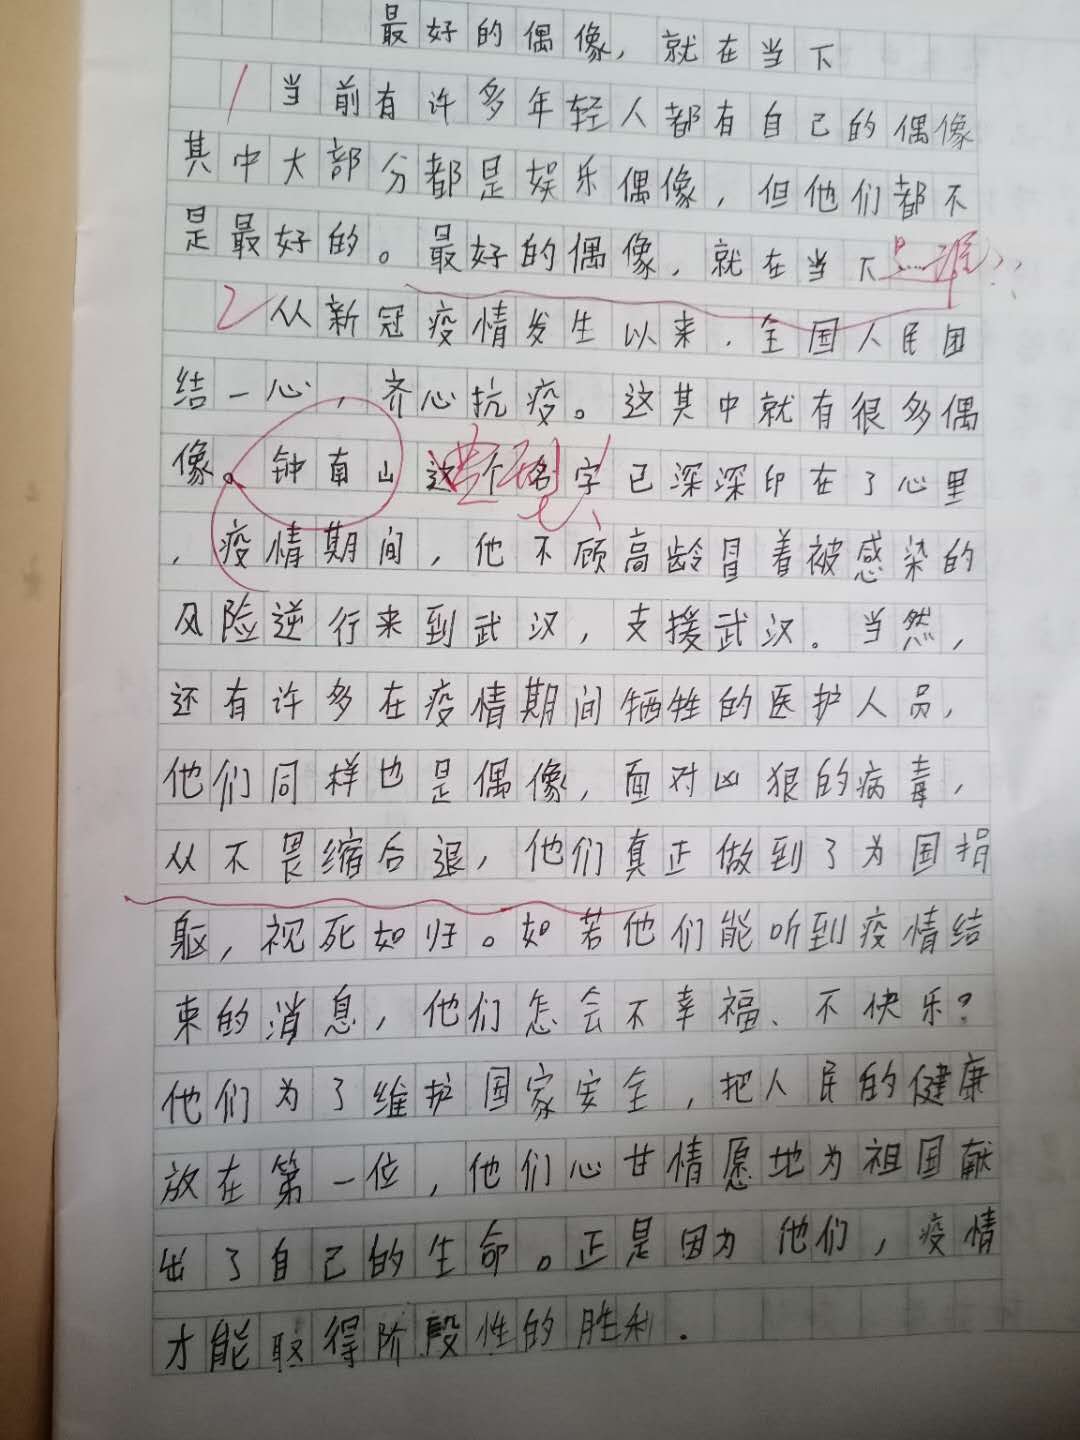 最好的偶像，就在当下
1 当前有许多年轻人都有自己的偶像
其中大部分都是娱乐偶像，但他们都不
是最好的。最好的偶像，就在当下
2 从新冠疫情发生以来，全国人民团
结一心，齐心抗疫。这其中就有很多偶
像。钟南山这个名字已深深印在了心里
，疫情期间，他不顾高龄冒着被感染的
风险逆行来到武汉，支援武汉。当然，
还有许多在疫情期间牺牲的医护人员，
他们同样也是偶像，面对凶狠的病毒，
从不畏缩后退，他们真正做到了为国捐
躯，视死如归。如若他们能听到疫情结
束的消息，他们怎会不幸福、不快乐？
他们为了维护国家安全，把人民的健康
放在第一位，他们心甘情愿地为祖国献
出了自己的生命。正是因为他们，疫情
才能取得阶段性的胜利．